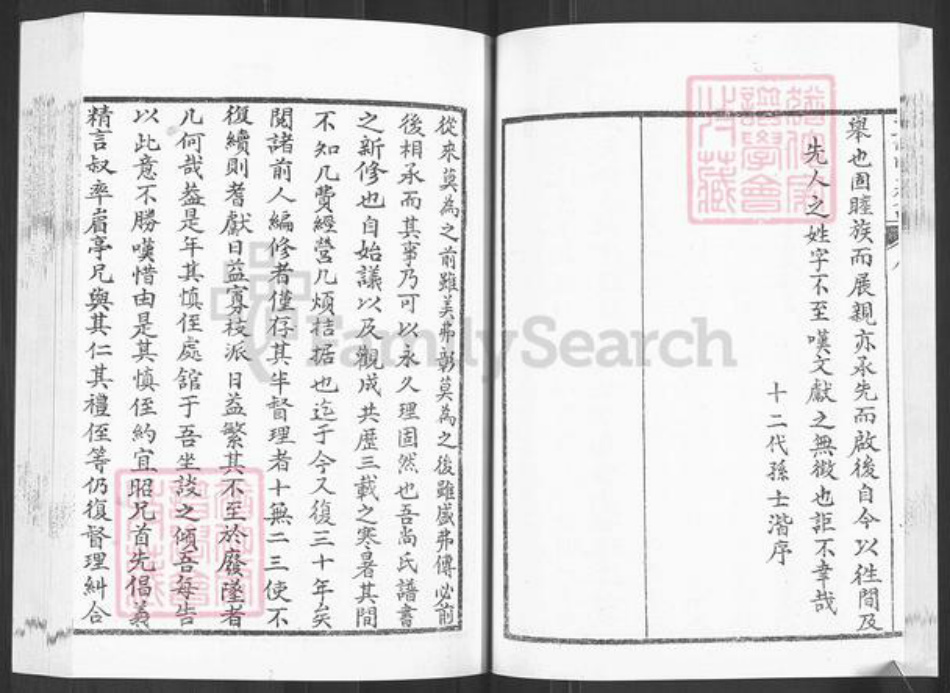 舉也固睦族而展親亦承先而啟後自今以往間及
先人之姓字不至嘆文獻之無徵也詎不幸哉
十二代孫士湝序
從來莫為之前雖美弗彰莫為之後雖盛弗傳必前
後相承而其事乃可以永久理固然也吾尚氏譜書
之新修也自始議以及觀成共歷三載之寒暑其間
不知几費經營几煩拮据也迄于今又復三十年矣
閱諸前人編修者僅存其半督理者十無二三使不
復續則耆獻日益寡枝派日益繁其不至於廢墜者
几何哉葢是年其慎侄處舘于吾坐談之傾吾每告
以此意不勝嘆惜由是其慎侄約宜昭兄首先倡義
精言叔率眉亭兄與其仁其禮侄等仍復督理糾合
FamilySearch